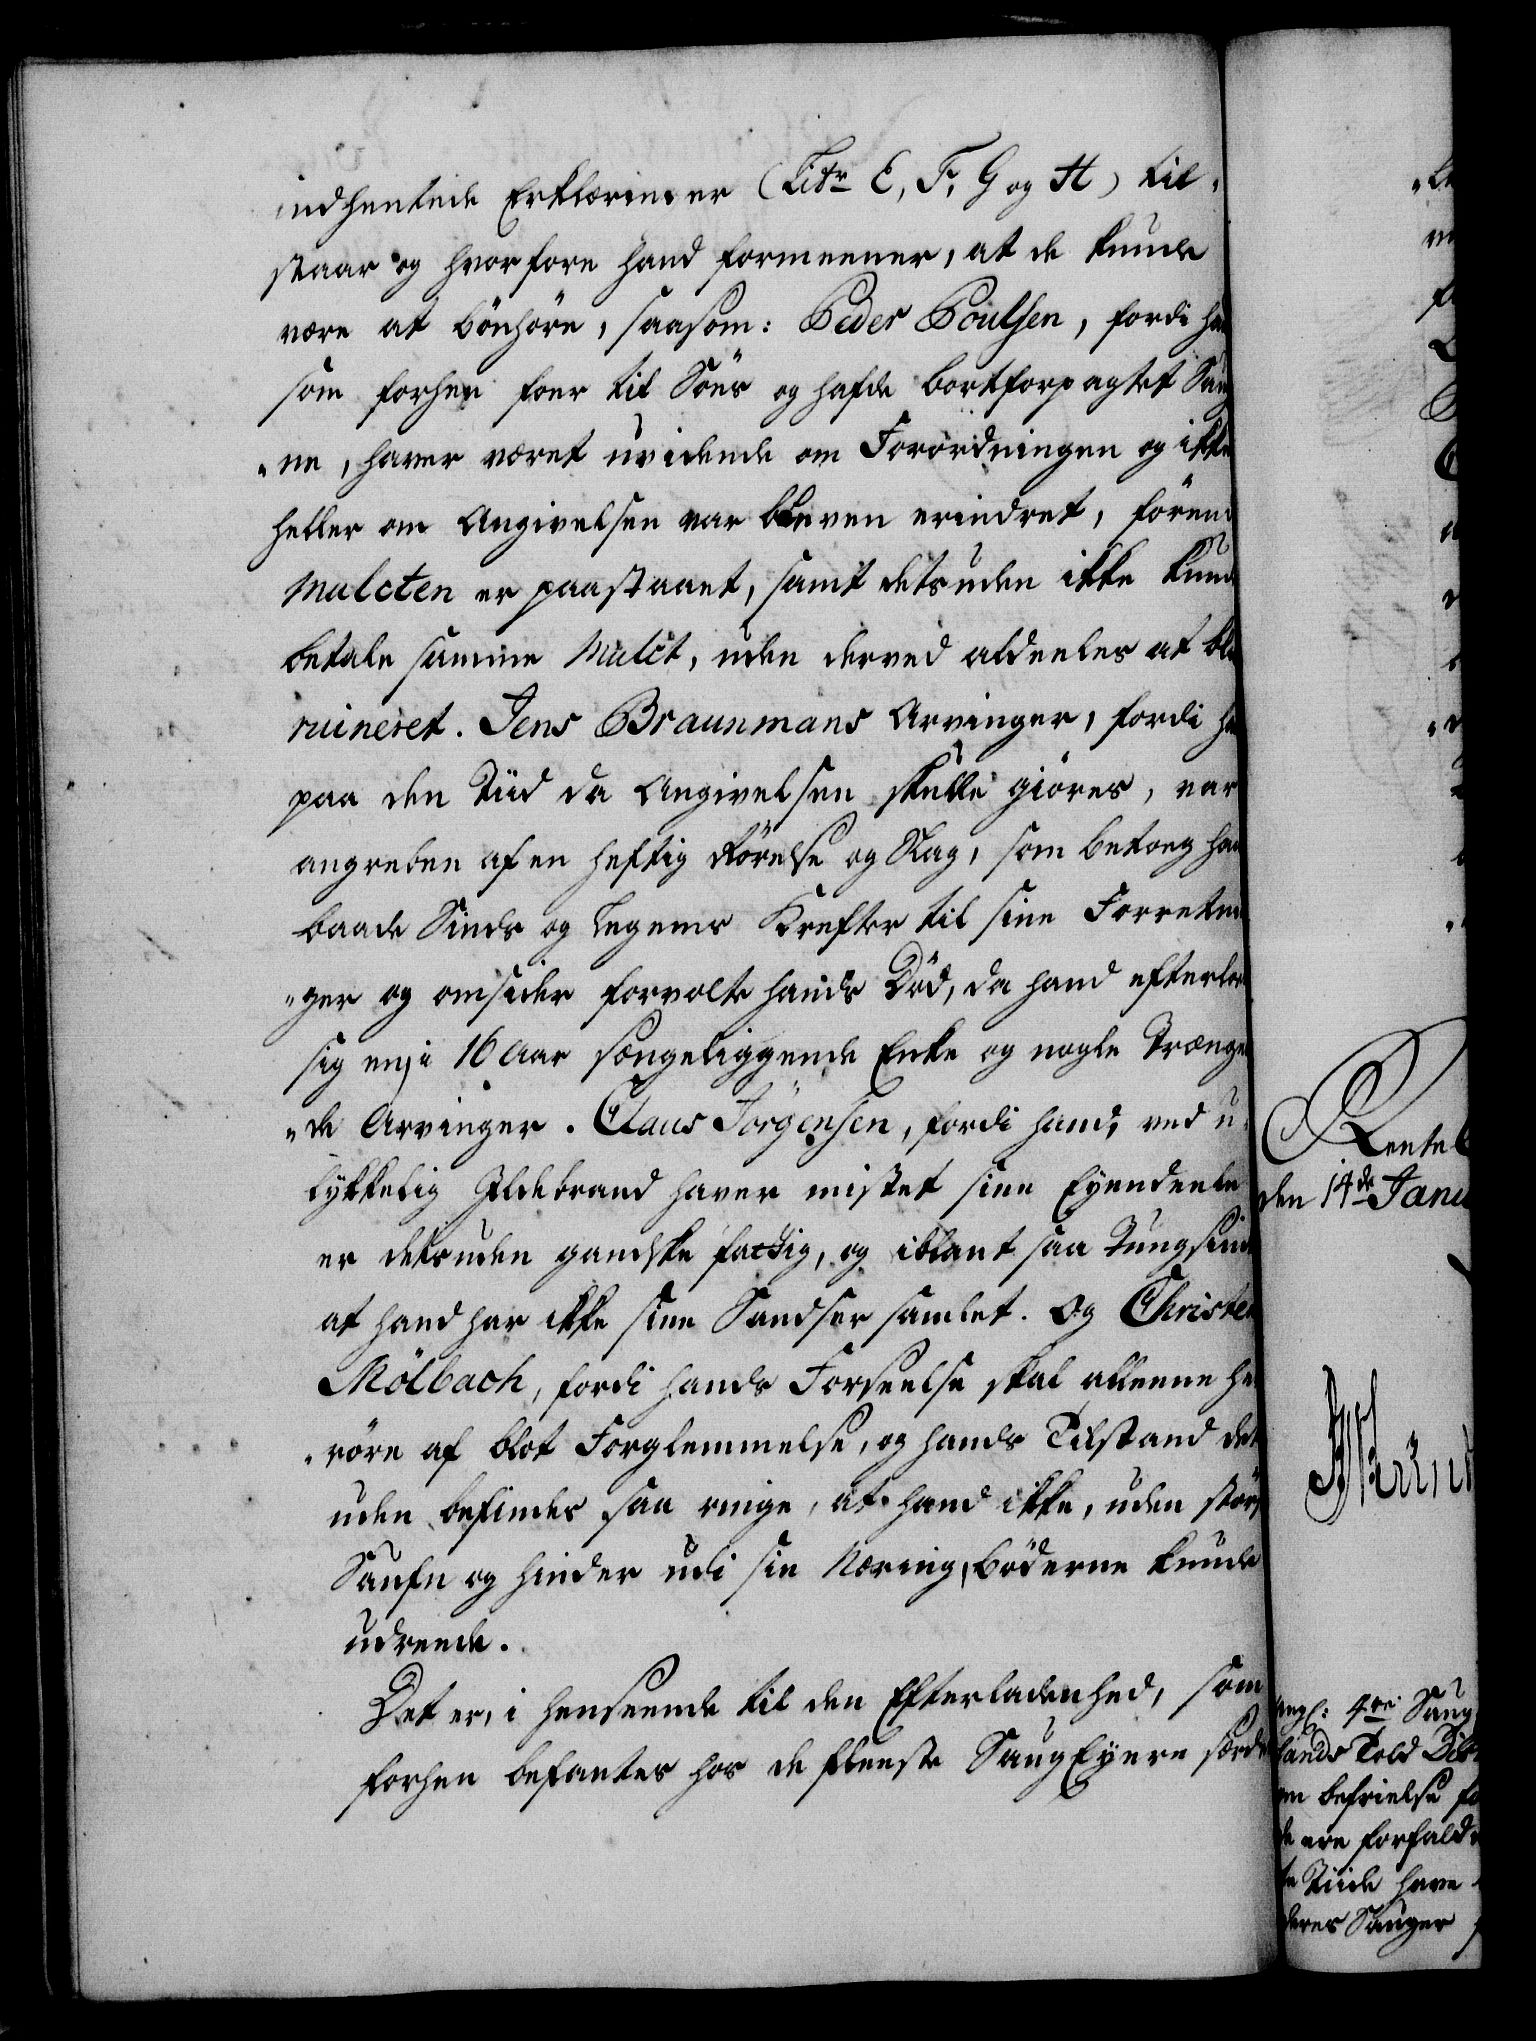 indhentede Erklæringer (Litr E, F, G og H) til-
staar og hvorfore hand formeener, at de kunde
være at bönhöre, saasom: Peder Poulsen, fordi ha
som forhen foer til Söes og hafde bortforpagtet Sau
"ne, haver været uvidende om Forordningen og ikke
heller om Angivelsen var bleven erindret, fören
Mulcten er paastaaet, samt desuden ikke kund
betale samme Mulct, uden derved aldeeles at bli
ruineret. Jens Braunmans Arvinger, fordi ha
paa den Tiid da Angivelsen skulle giöres, var
angreben af en heftig Rörelse og Slag, som betog ha
baade Sinds og Legems Kræfter til sine Forretni
"ger og omsider forvolte hands Död, da hand efterlod
sig en i 16 Aar sængeliggende Enke og nogle Trænge
"de Arvinger. Claus Jörgensen, fordi hand, ved u-
lykkelig Ildebrand haver mistet sine Eyendeele
er desuden gandske fattig, og iblant saa Tungsind
at hand har ikke sine Sandser samlet. Og Christen
Mölbach, fordi hands Forseelse skal alleene he
"röre af blot Forglemmelse, og hands Tilstand des
uden befindes saa ringe, at hand ikke, uden störs
Saufn og hinder udi sin Næring, böderne kunde
udreede.
Det er, i henseende til den Efterladenhed, som
forhen befantes hos de fleeste Saug Eyere særde
Rentek
den 14de Janu
4re Saug
lands Told Dist
om befrielse fo
de ere forfald
te Tiide have
deres Sauger